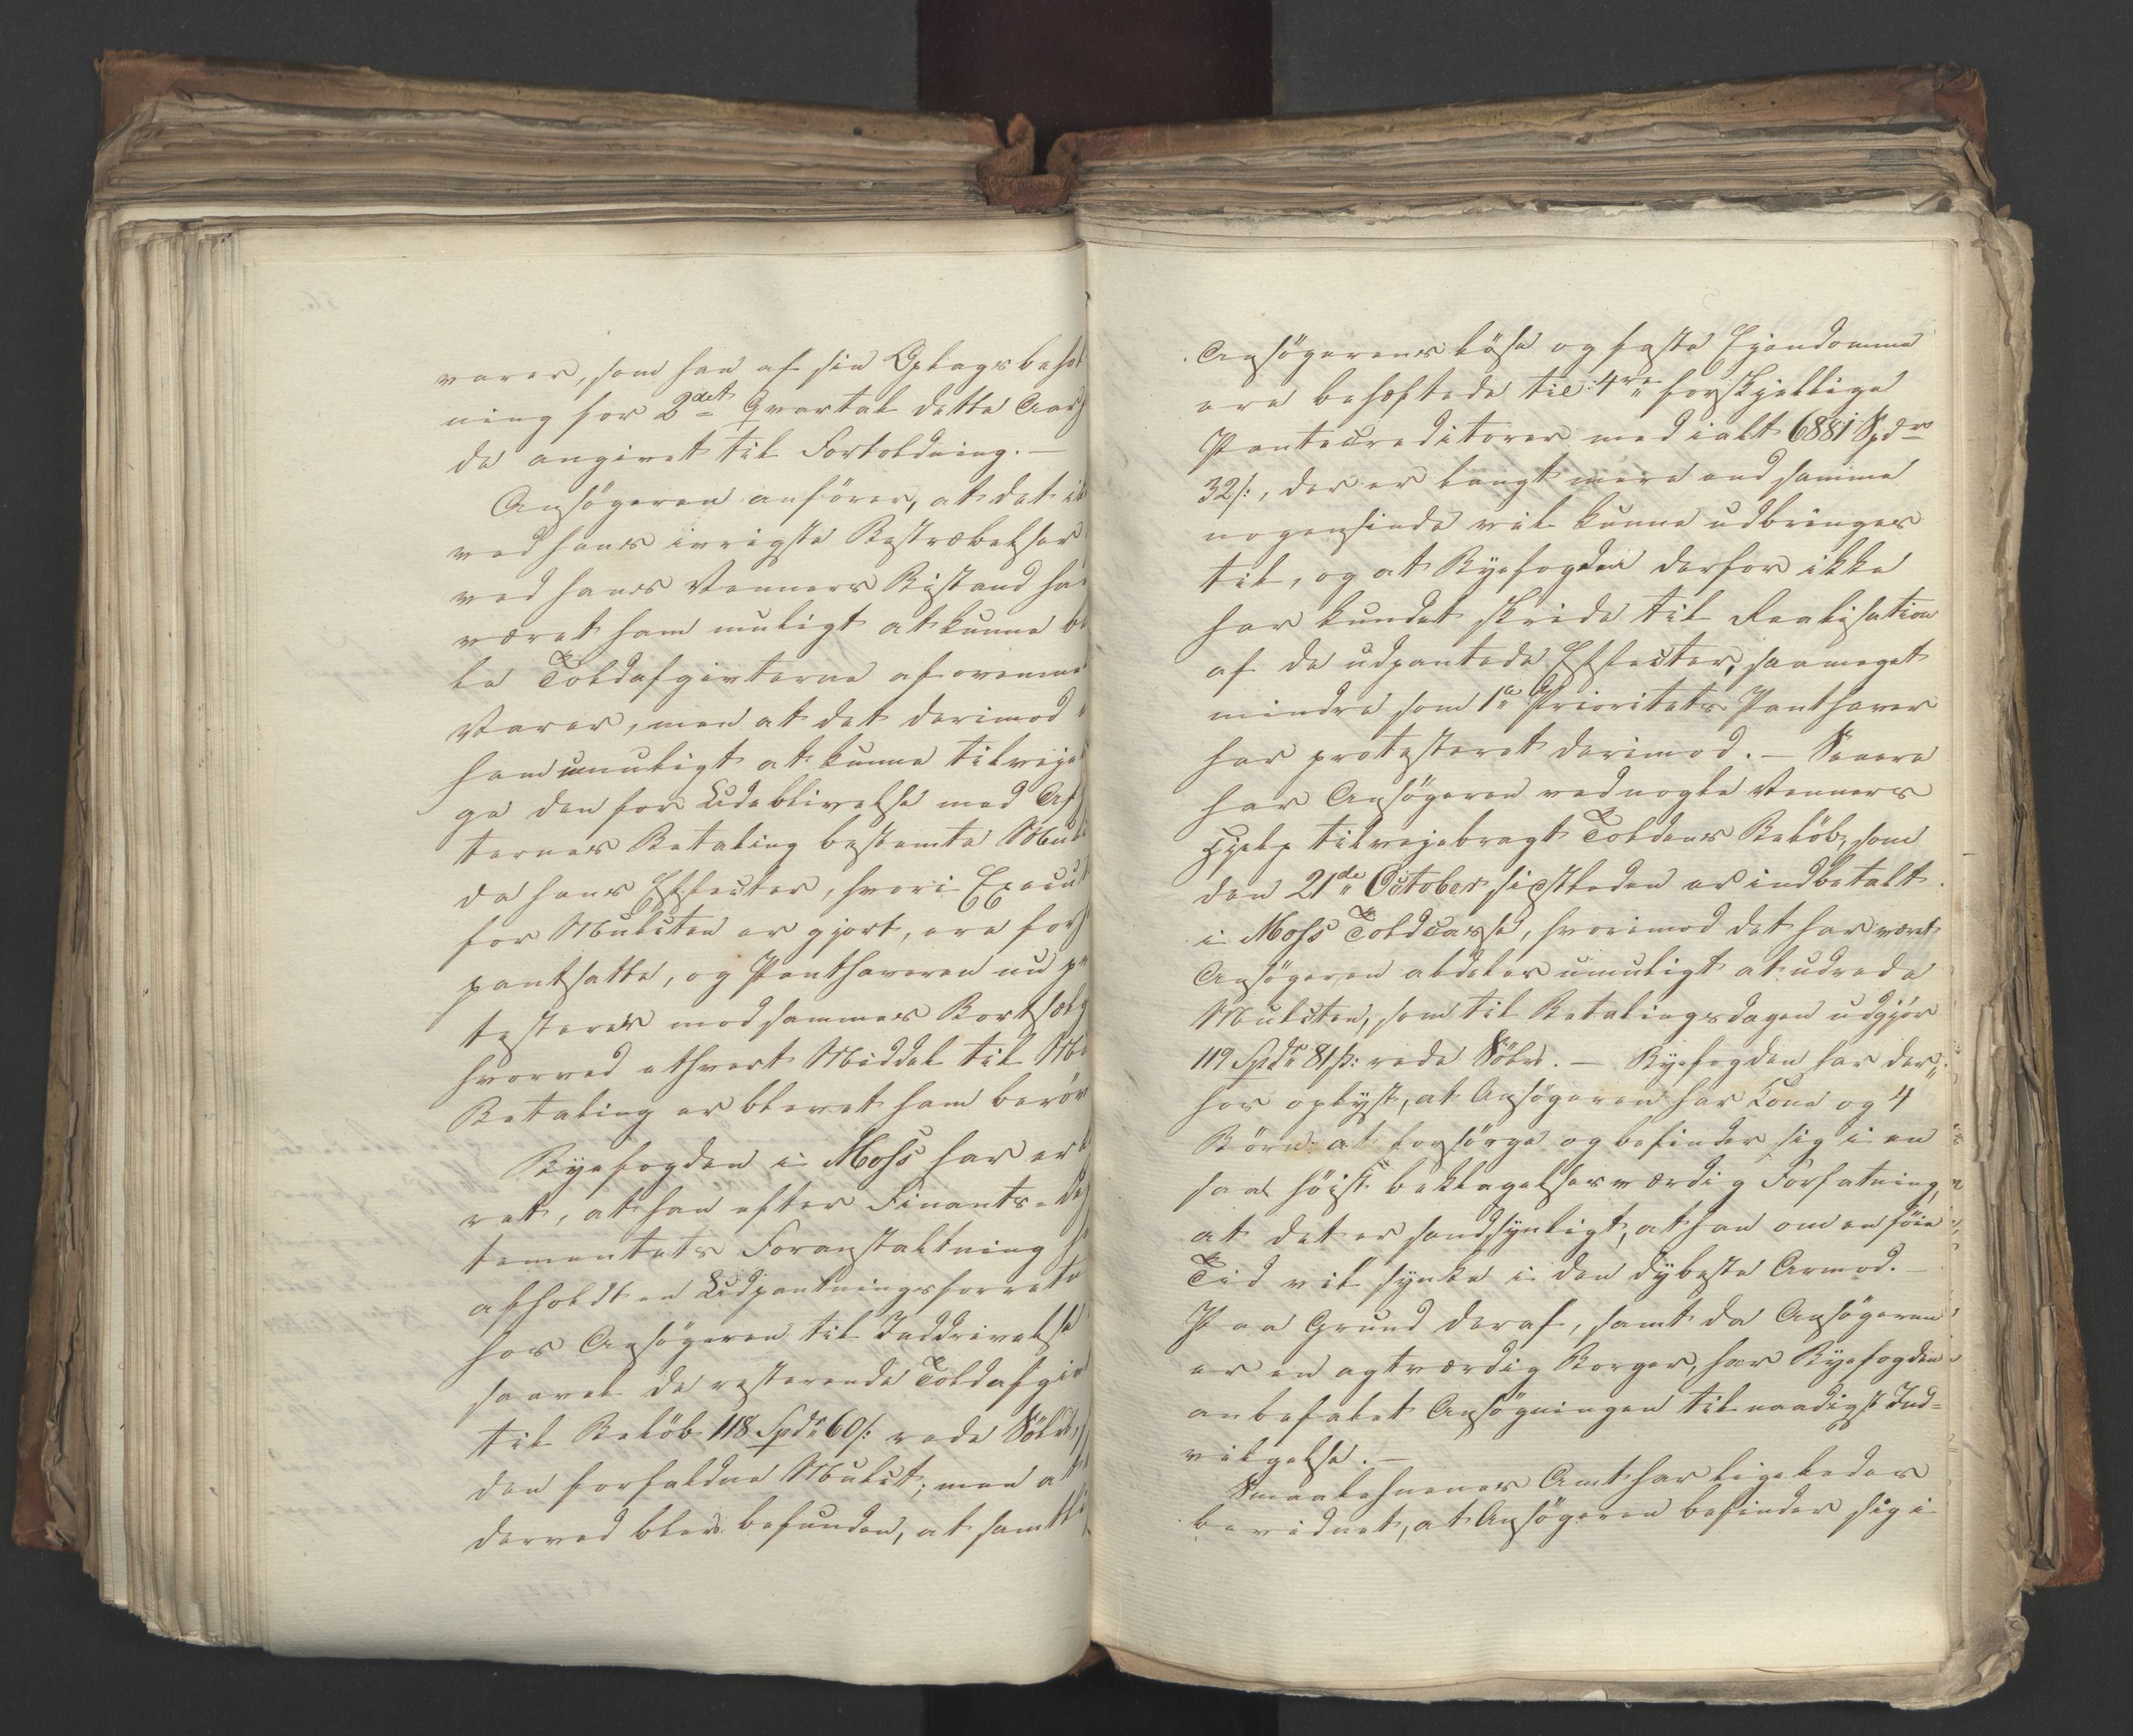 varer, som han af sin Oplagsbehold
ning for 2det Qvartal dette Aar
de angivet til Fortoldning. —
Ansögeren anförer, at det
ved hans ivrigste Bestræbelser
ved hans Venners Bistand ha
været ham muligt at kunne be
le Toldafgivterne af ovenme
Varer, men at det derimod
ham umuligt at kunne tilveje
ge den for Udeblivelse med Af
ternes Betaling bestemte Mul
da hans Effecter, hvori Execut
for Mulcten er gjort, ere for
pantsatte, og Panthaveren nu p
testerer mod sammes Bortsælg
hvorved ethvert Middel til
Betaling er blevet ham beröv
Byefogden i Moss har erk
ret, at han efter Finants-De
tementets Foranstaltning h
afholdt en Udpantningsforretn
hos Ansögeren til Inddrivelse
saavel de resterende Toldafgiv
til Belöb 118 Spdr 60 s: rede Sölv,
den forfaldne Mulct; men at
derved blev befunden, at samtl
Ansögerens löse og faste Ejendomme
ere behæftede til 4re forskjellige
Pantecreditorer med ialt 6881 Spdr
32 s:, der er langt mere end samme
nogensinde vil kunne udbringes
til, og at Byefogden derfor ikke
har kundet skride til Realisation
af de udpantede Effecter, saameget
mindre som 1a Prioritets Panthaver
har protesteret derimod. — Senere
har Ansögeren ved nogle Venners
Hjelp tilvejebragt Toldens Belöb, som
den 21de October sidstleden er indbetalt
i Moss Toldcasse, hvorimod det har været
Ansögeren aldeles umuligt at udrede
Mulcten, som til Betalingsdagen udgjör
119 Spdr 81 s: rede Sölv. — Byefogden har der„
hos oplyst, at Ansögeren har Kone og 4
Börn at forsörge og befinder sig i en
saa höist beklagelsesværdig Forfatning,
at det er sandsynligt, at han om en föie
Tid vil synke i den dybeste Armod. —
Paa Grund deraf, samt da Ansögeren
er en agtværdig Borger, har Byefogden
anbefalet Ansögningen til naadigst Ind=
vilgelse. —
Smaalehnenes Amt har ligeledes
bevidnet, at Ansögeren befinder sig i